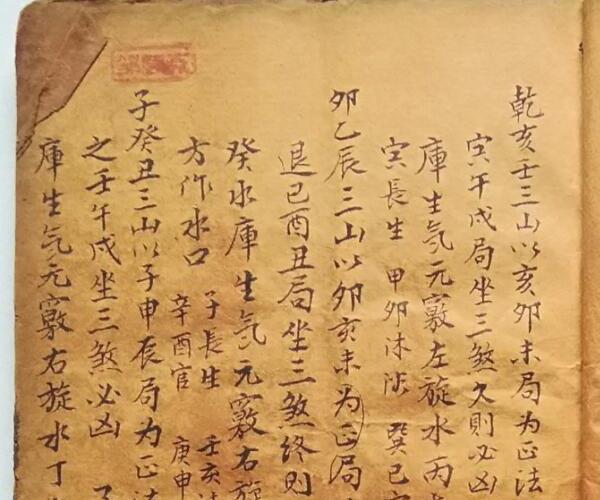 乾亥壬三山以亥卯未局为正法
寅午戌局坐三煞久则必凶
庫生氣元竅左旋水丙
寅長生 甲卯沐浴 巽巳
卯乙辰三山以卯亥未为正局
退巳酉丑局坐三煞终则
癸水庫生氣元竅右旋
方作水口 子長生 壬亥
辛酉官 庚申
子癸丑三山以子申辰局为正法
之壬午戌坐三煞必凶
庫生气元竅右旋水丁